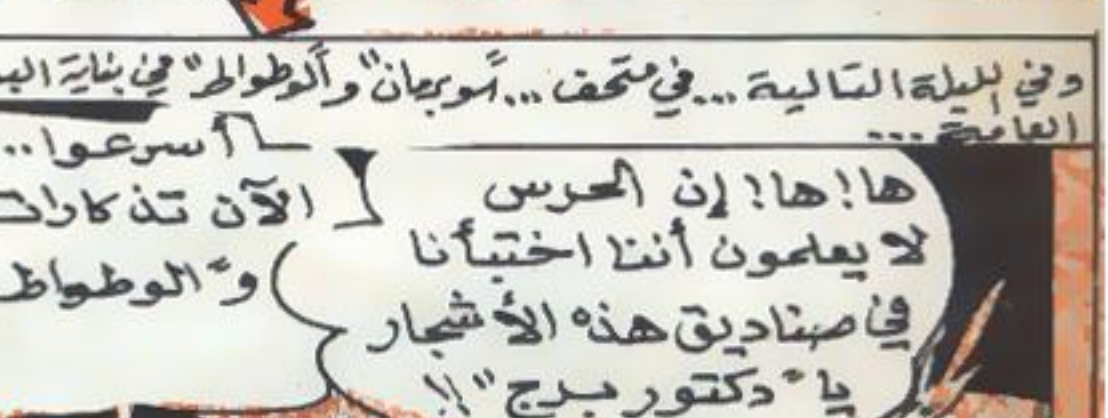 وفي الليلة التالية ... في متحف ... "سوبرمان" و"الوطواط" في بناية
العامة ...
ها! ها! إن الحرس
لا يعلمون أننا اختبأنا
في صناديق هذه الأشجار
يا "دكتور برج"!!
أسرعوا..
الآن تذكارات
و"الوطواط